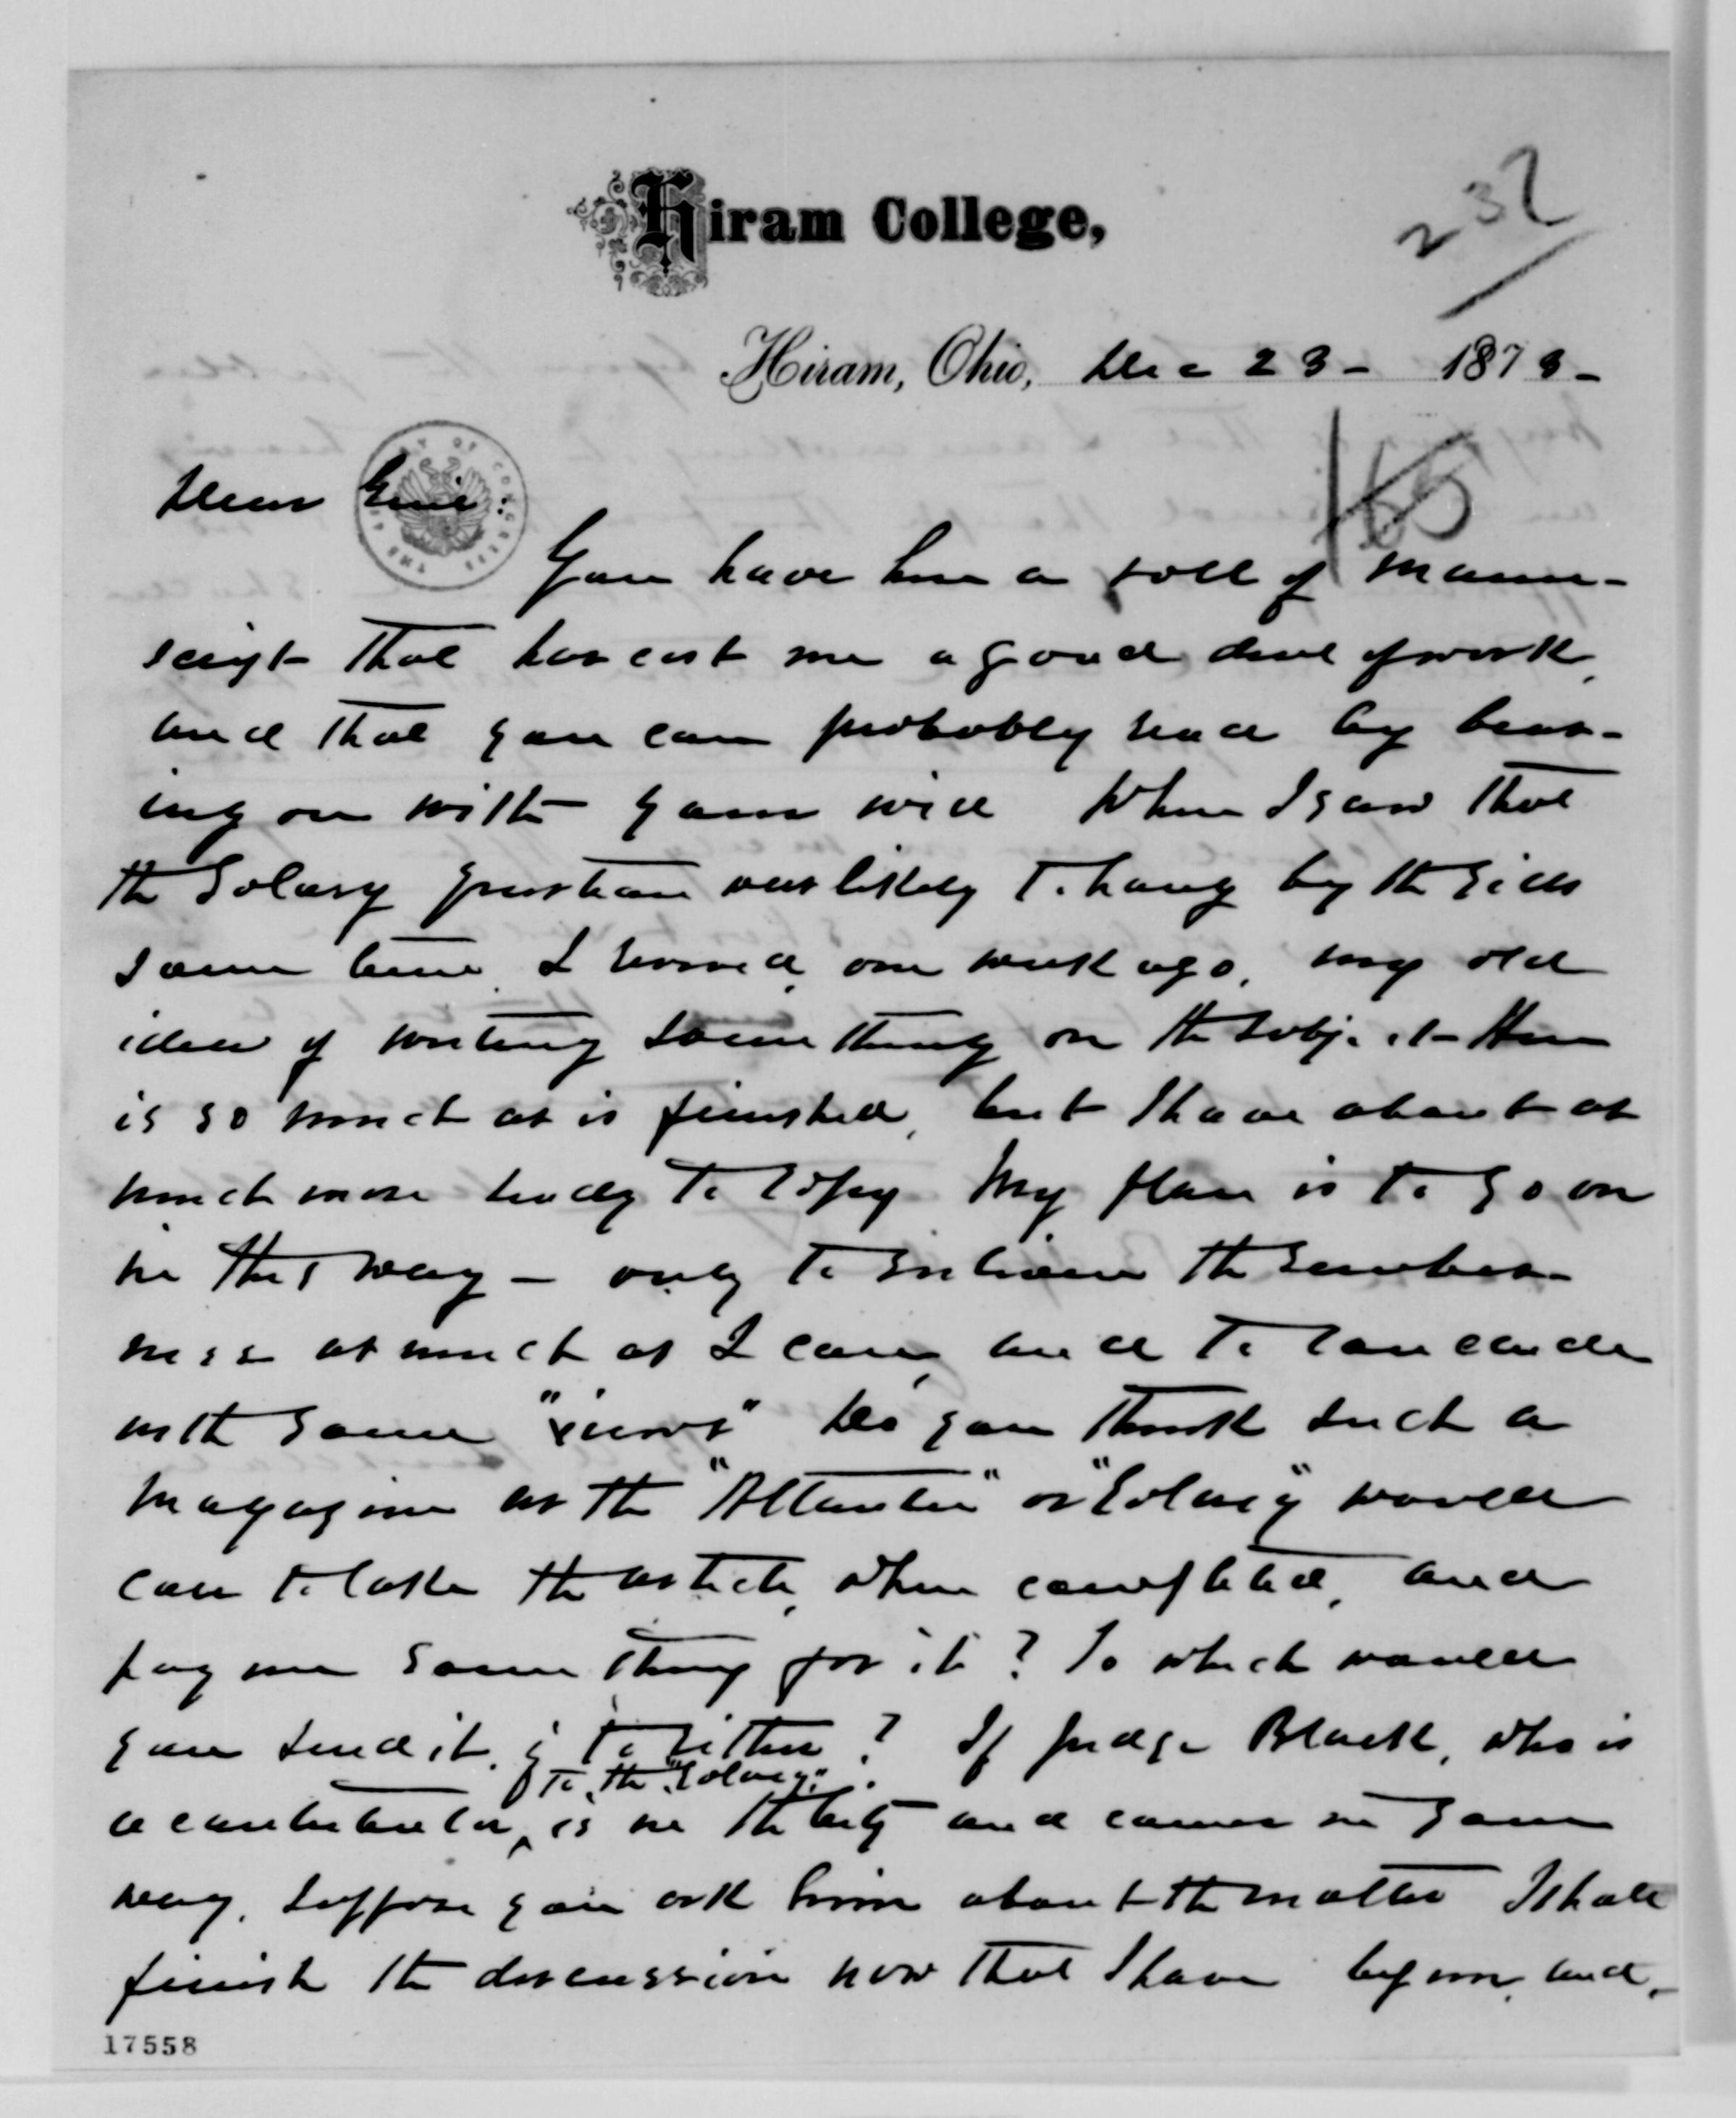 Hiram College,
232
Hiram, Ohio, Dec 23 - 1873 -
165
Dear
You have here a roll of manu-
script that has cost me a good deal of work,
and that you can probably read by bear-
ing on with your will When I saw that
the Salary question was likely to hang by the
some time, I one week ago, my old
idea of writing something on the subject. Here
is so much as is finished, but I have about as
much more ready to copy My plan is to go on
in this way - only to the
ness as much as I can, and to conclude
with some "views" Do you think such a
magazine as the "Atlantic" or "Galaxy" would
care to take the article, when completed, and
pay me something for it? To which would
you send it, if to either? If Judge Black, who is
a contributor to the "Galaxy", is in the city and comes in your
way, suppose you ask him about the matter I shall
finish the discussion now that I have begun, and,
17558